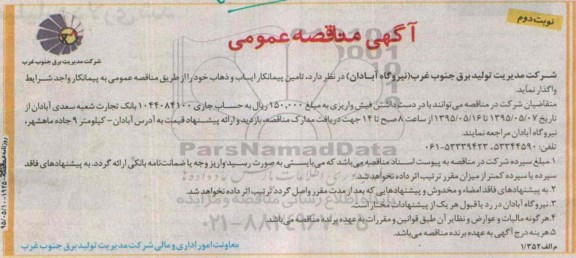 نوبت دوم
آگهی مناقصه عمومی
شرکت مدیریت تولید برق جنوب غرب
شرکت مدیریت تولید برق جنوب غرب(نیروگاه آبادان) در نظر دارد، تامین پیمانکار ایاب و ذهاب خود را از طریق مناقصه عمومی به پیمانکار واجد شرایط
واگذار نماید.
متقاضیان شرکت در مناقصه می توانند با در دست داشتن فیش واریزی به مبلغ ۱۵۰,۰۰۰ ریال به حساب جاری ۱۰۴۴۰۸۴۱۰۰ بانک تجارت شعبه سعدی آبادان از
تاریخ ۱۳۹۵/۰۵/۰۷ تا ۱۳۹۵/۰۵/۱۶ از ساعت ۸ صبح تا ۱۴ جهت دریافت مدارک مناقصه، بازدید و ارائه پیشنهاد قیمت به آدرس آبادان- کیلومتر ۹ جاده ماهشهر،
نیروگاه آبادان مراجعه نمایند.
تلفن: ۵۳۳۴۴۵۹۰، ۵۳۳۳۹۴۲۳-۰۶۱
۱. مبلغ سپرده شرکت در مناقصه به پیوست اسناد مناقصه می باشد که می بایستی به صورت رسید واریز وجه یا ضمانت نامه بانکی ارائه گردد. به پیشنهادهای فاقد
سپرده یا سپرده کمتر از میزان مقرر ترتیب اثر داده نخواهد شد.
۲. به پیشنهادهای فاقد امضاء و مخدوش و پیشنهادهایی که بعد از مدت مقرر واصل گردد ترتیب اثر داده نخواهد شد.
۳. نیروگاه آبادان در رد یا قبول هر یک از پیشنهادات مختار است.
۴. هرگونه مالیات و عوارض و نظایر آن طبق قوانین و مقررات به عهده برنده مناقصه می باشد.
۵. هزینه درج آگهی به عهده برنده مناقصه می باشد.
م الف ۱/۳۵۲
معاونت امور اداری و مالی شرکت مدیریت تولید برق جنوب غرب
ParsNamadData
۰۲۱-۸۸۳۴۹۶۷۰-۵